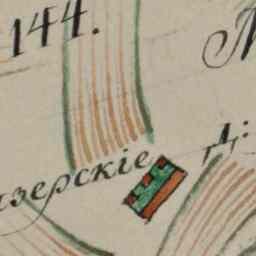 144.
зерскіе Д: